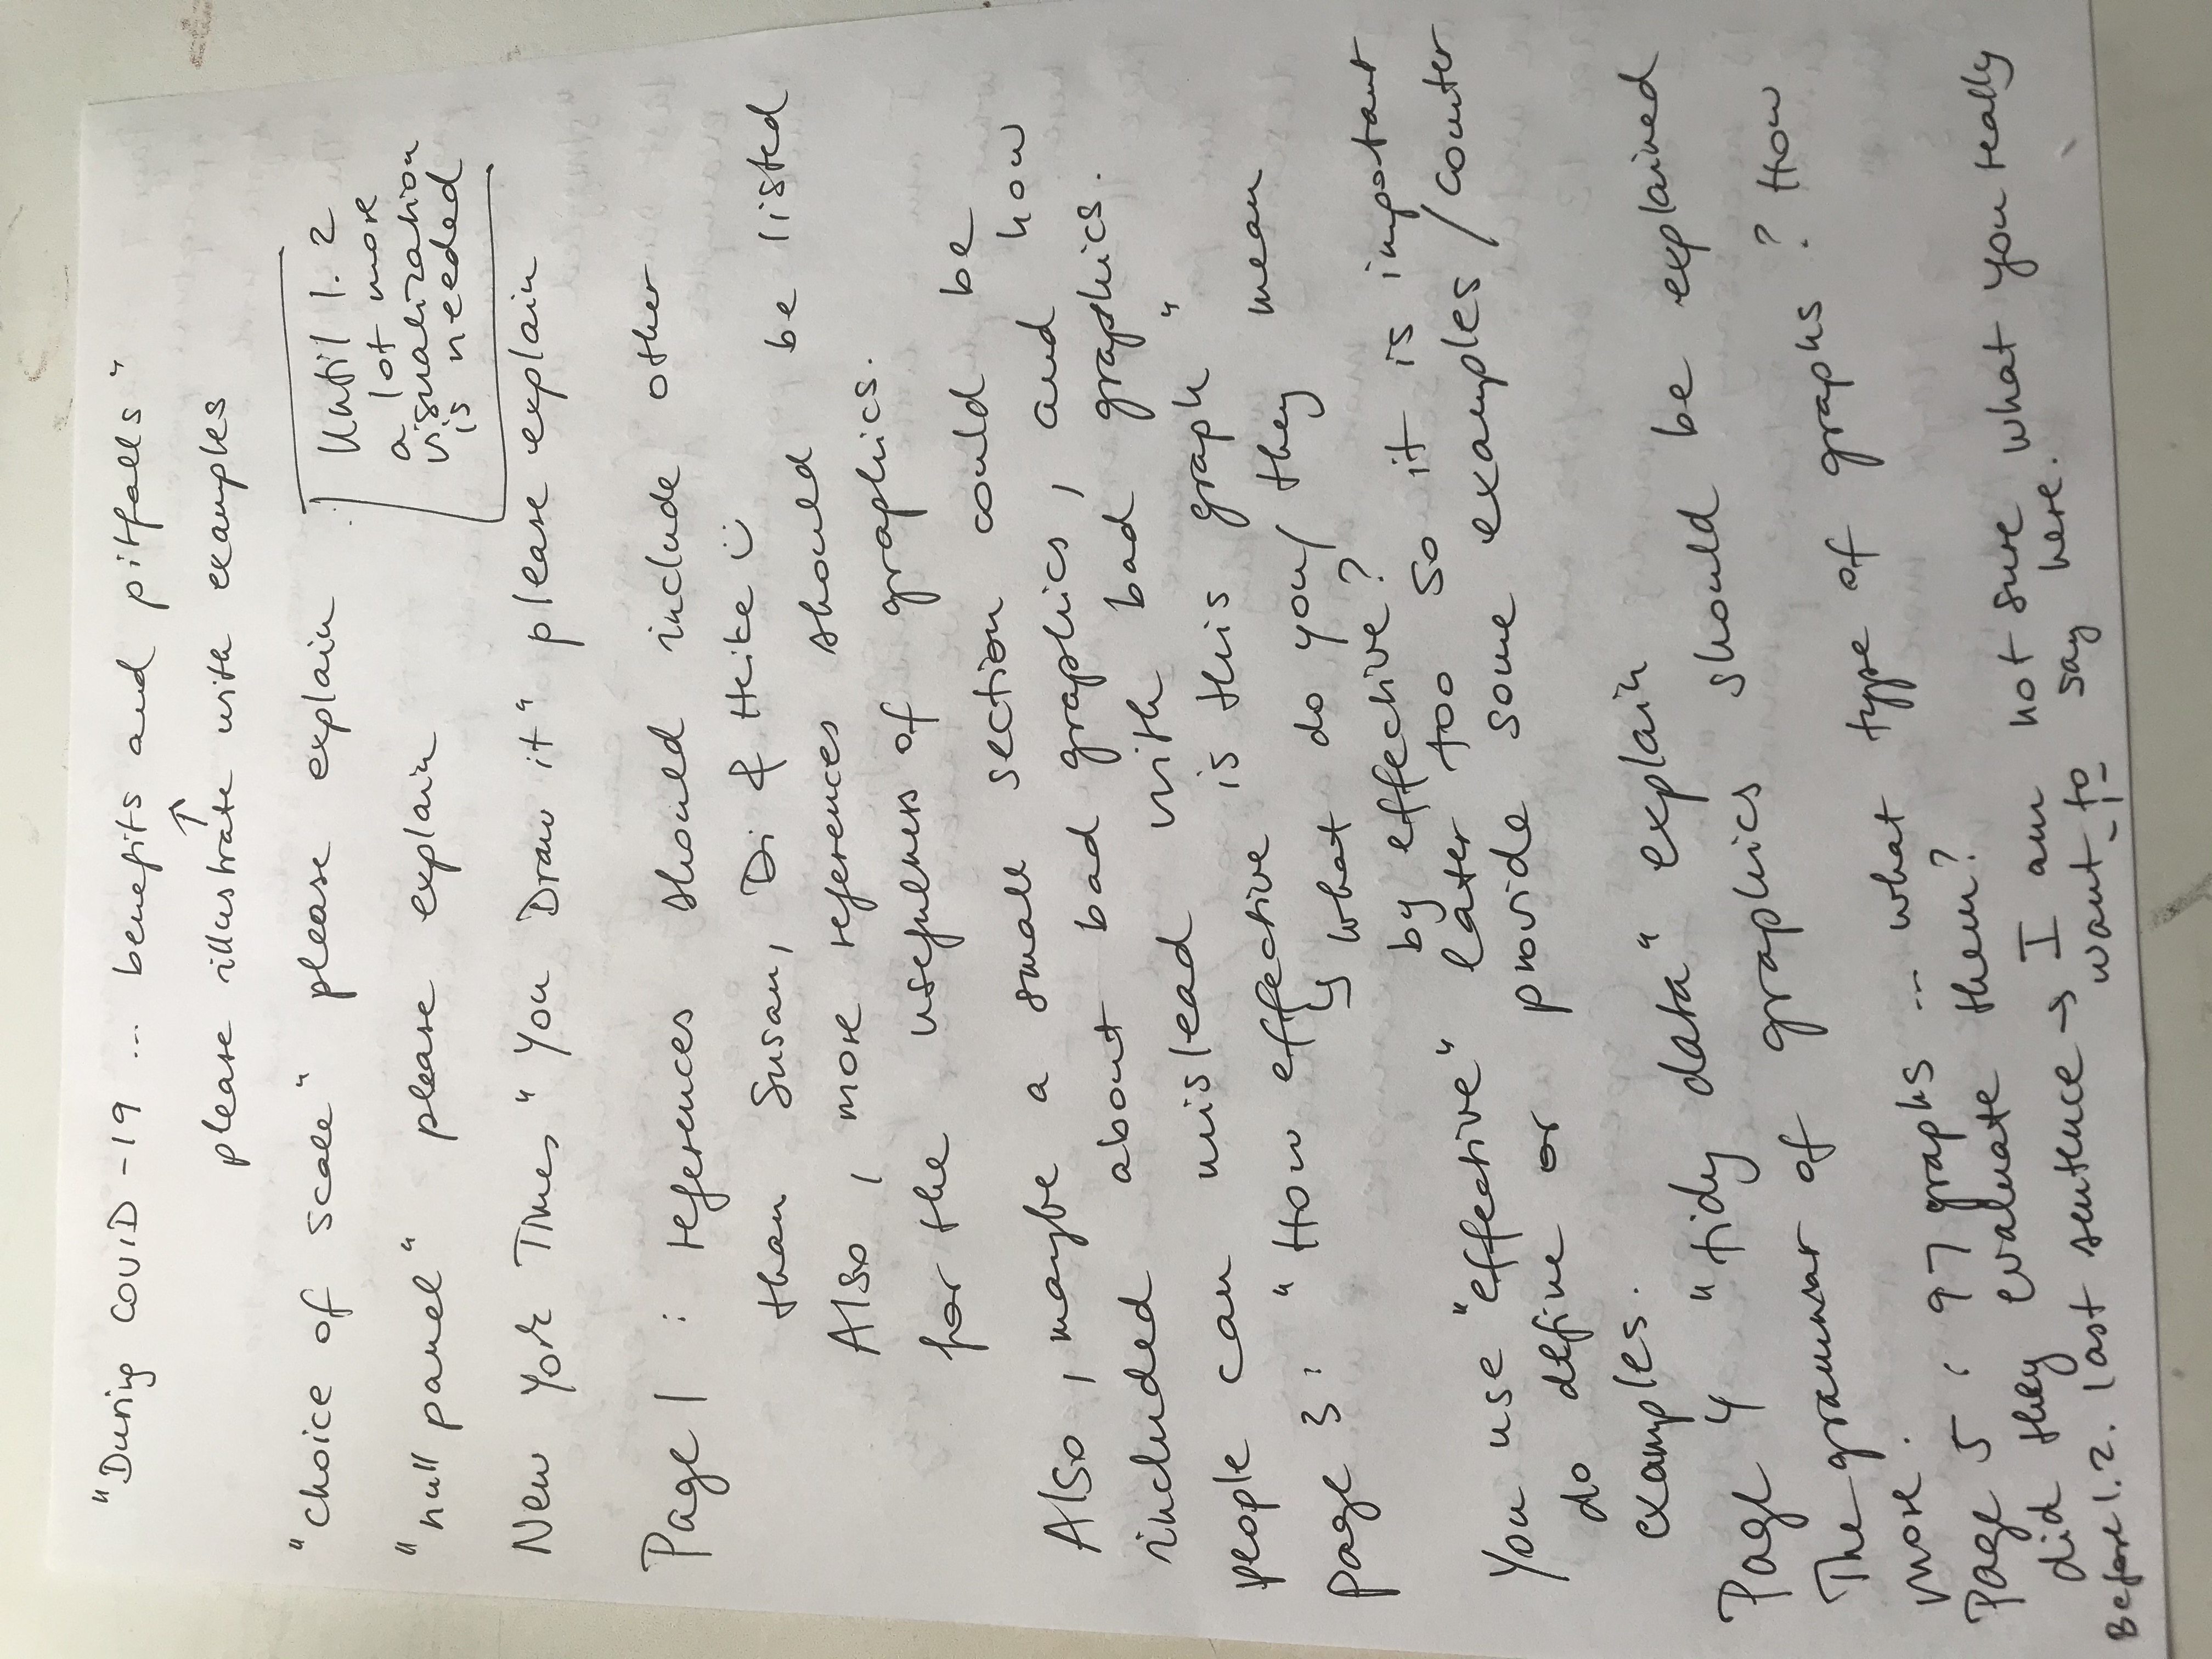 "During COVID-19 ... benefits and pitfalls"
↑
please illustrate with examples
"choice of scale" please explain
"null panel" please explain
Until 1.2
a lot more
visualization
is needed
New York Times "You Draw it" please explain
Page 1 : references should include other
than Susan, Di & Heike ü
Also, more references should be listed
for the usefulness of graphics.
Also, maybe a small section could be
included about bad graphics, and how
people can mislead with bad graphics.
page 3: "How effective is this graph"
↳ what do you/they mean
by effective?
You use "effective" later too so it is important
do define or provide some examples/counter
examples.
Page 4 "tidy data" explain
The grammar of graphics should be explained
more.
Page 5: 97 graphs ... what type of graphs? How
did they evaluate them?
Before 1.2. last sentence → I am not sure what you really
want to say here.
-1-